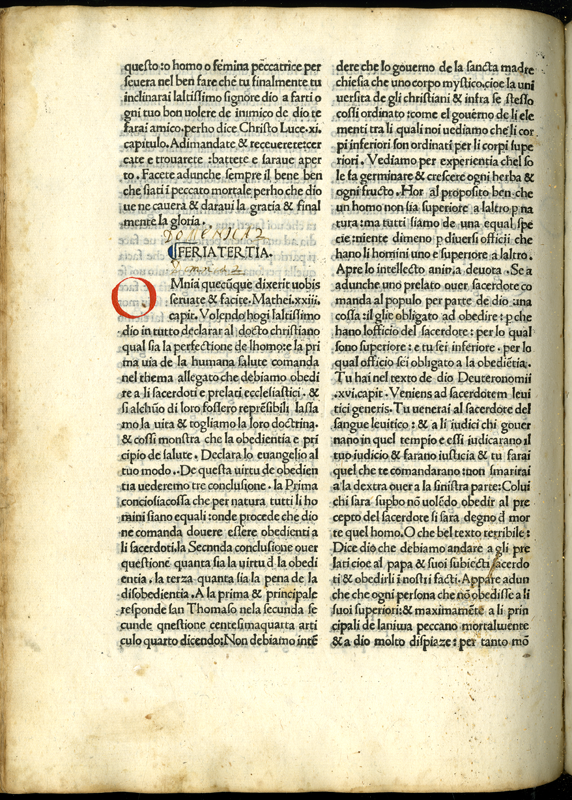 questo :o homo o femina peccatrice per
seuera nel ben fare che tu finalmente tu
inclinarai laltissimo signore dio a farti o
gni tuo bon uolere de inimico de dio te
farai amico.perho dice Christo Luce.xi.
capitulo. Adimandate & receuerete:cer
cate e trouarete :battete e sarauе aper
to . Facete adunche sempre il bene ben
che siati ī peccato mortale perho che dio
ue ne cauera & daraui la gratia & final
mente la gloria .
DOMENICA 2
FERIA TERTIA.
OMnia quecūque dixerit uobis
seruate & facite. Mathei.xxiii.
capit. Volendo hogi laltissimo
dio in tutto declarar al docto christiano
qual sia la perfectione de lhomo: e la pri
ma uia de la humana salute comanda
nel thema allegato che debiamo obedi
re a li sacerdoti e prelati ecclesiastici . &
si alchūo di loro fossero reprēsibili lassa
mo la uita & togliamo la loro doctrina.
& cossi monstra che la obedientia e pri
cipio de salute . Declara lo euangelio al
tuo modo . De questa uirtu de obedien
tia uederemo tre conclusione . la Prima
conciosiacossa che per natura tutti li ho
mini siano equali :onde procede che dio
ne comanda douere essere obedienti a
li sacerdoti.la Secnnda conclusione ouer
questione quanta sia la uirtu d la obedi
entia . la terza quanta sia la pena de la
disobedientia . A la prima & principale
responde san Thomaso nela secunda se
cunde qnestione centesimaquarta arti
culo quarto dicendo:Non debiamo intē
dere che lo gouerno de la sancta madre
chiesia che uno corpo mystico.cioe la uni
uersita de gli christiani & infra se stesso
cossi ordinato :come el gouerno de li ele
menti tra li quali noi uediamo che li cor
pi inferiori son ordinati per li corpi supe
riori . Vediamo per experientia chel so
le fa germinare & crescere ogni herba &
ogni fructo . Hor al proposito ben che
un homo non sia superiore a laltro p na
tura :ma tutti siamo de una equal spe
cie :niente dimeno p diuersi officii che
hano li homini uno e superiore a laltro .
Apre lo intellecto anima deuota . Se a
adunche uno prelato ouer sacerdote co
manda al populo per parte de dio una
cossa :il glie obligato ad obedire : p che
hano lofficio del sacerdote : per lo qual
sono superiore : e tu sei inferiore . per lo
qual officio sei obligato a la obediētia.
Tu hai nel texto de dio Deuteronomii
.xvi.capit . Veniens ad sacerdotem leui
tici generis. Tu uenerai al sacerdote del
sangue leuitico : & a li iudici chi gouer
nano in quel tempio e essi iudicarano il
tuo iudicio & farano iusticia & tu farai
quel che te comandarano :non smarirai
a la dextra ouer a la sinistra parte:Colui
chi sara supbo nō uolēdo obedir al pre
cepto del sacerdote si sara degno d mor
te quel homo.O che bel texto terribile :
Dice dio che debiamo andare a gli pre
lati cioe al papa & suoi subiecti sacerdo
ti & obedirli ī nostri facti. Appare adun
che che ogni persona che nō obedisse a li
suoi superiori:& maximamēte a li prin
cipali de laniwa peccano mortalwente
& a dio molto dispiaze : per tanto mō